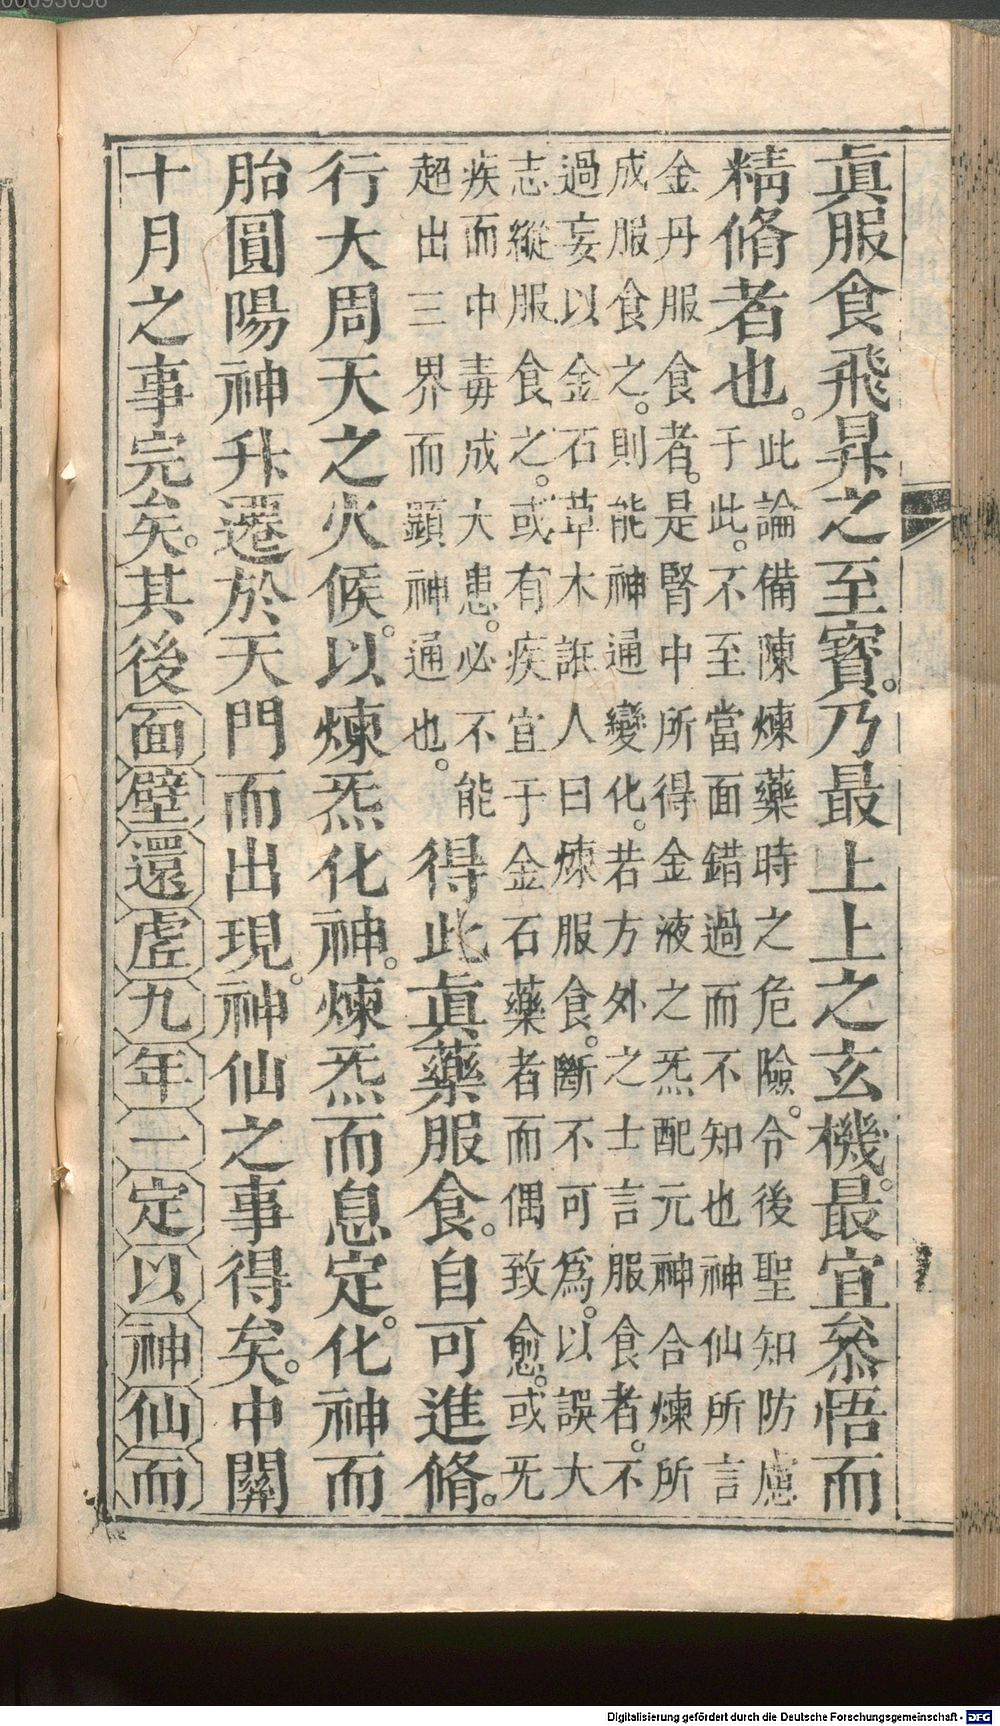 眞服食飛昇之至寳。乃最上上之玄機。最宜叅悟而
精脩者也。
此論備陳煉藥時之危險。令後聖知防慮
于此。不至當面錯過而不知也神仙所言
金丹服食者。是腎中所得金液之炁配元神合煉所
成服食之。則能神通變化。若方外之士言服食者。不
過妄以金石草木誑人曰煉服食。斷不可爲。以誤大
志縱服食之。或有疾宜于金石藥者而偶致愈。或旡
疾而中毒成大患。必不能
超出三界而顯神通也。
得此眞藥服食。自可進脩。
行大周天之火候。以煉炁化神。煉炁而息定。化神而
胎圓陽神升遷於天門而出現。神仙之事得矣。中關
十月之事完矣。其後面壁還虛九年一定以神仙而
Digitalisierung gefördert durch die Deutsche Forschungsgemeinschaft - DFG